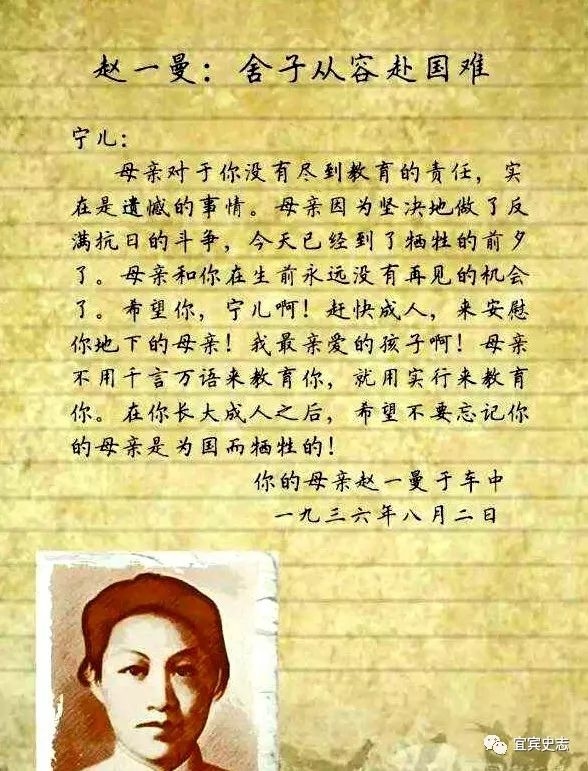 赵一曼：舍子从容赴国难
宁儿：
母亲对于你没有尽到教育的责任，实
在是遗憾的事情。母亲因为坚决地做了反
满抗日的斗争，今天已经到了牺牲的前夕
了。母亲和你在生前永远没有再见的机会
了。希望你，宁儿啊！赶快成人，来安慰
你地下的母亲！我最亲爱的孩子啊！母亲
不用千言万语来教育你，就用实行来教育
你。在你长大成人之后，希望不要忘记你
的母亲是为国而牺牲的！
你的母亲赵一曼于车中
一九三六年八月二日
宜宾史志